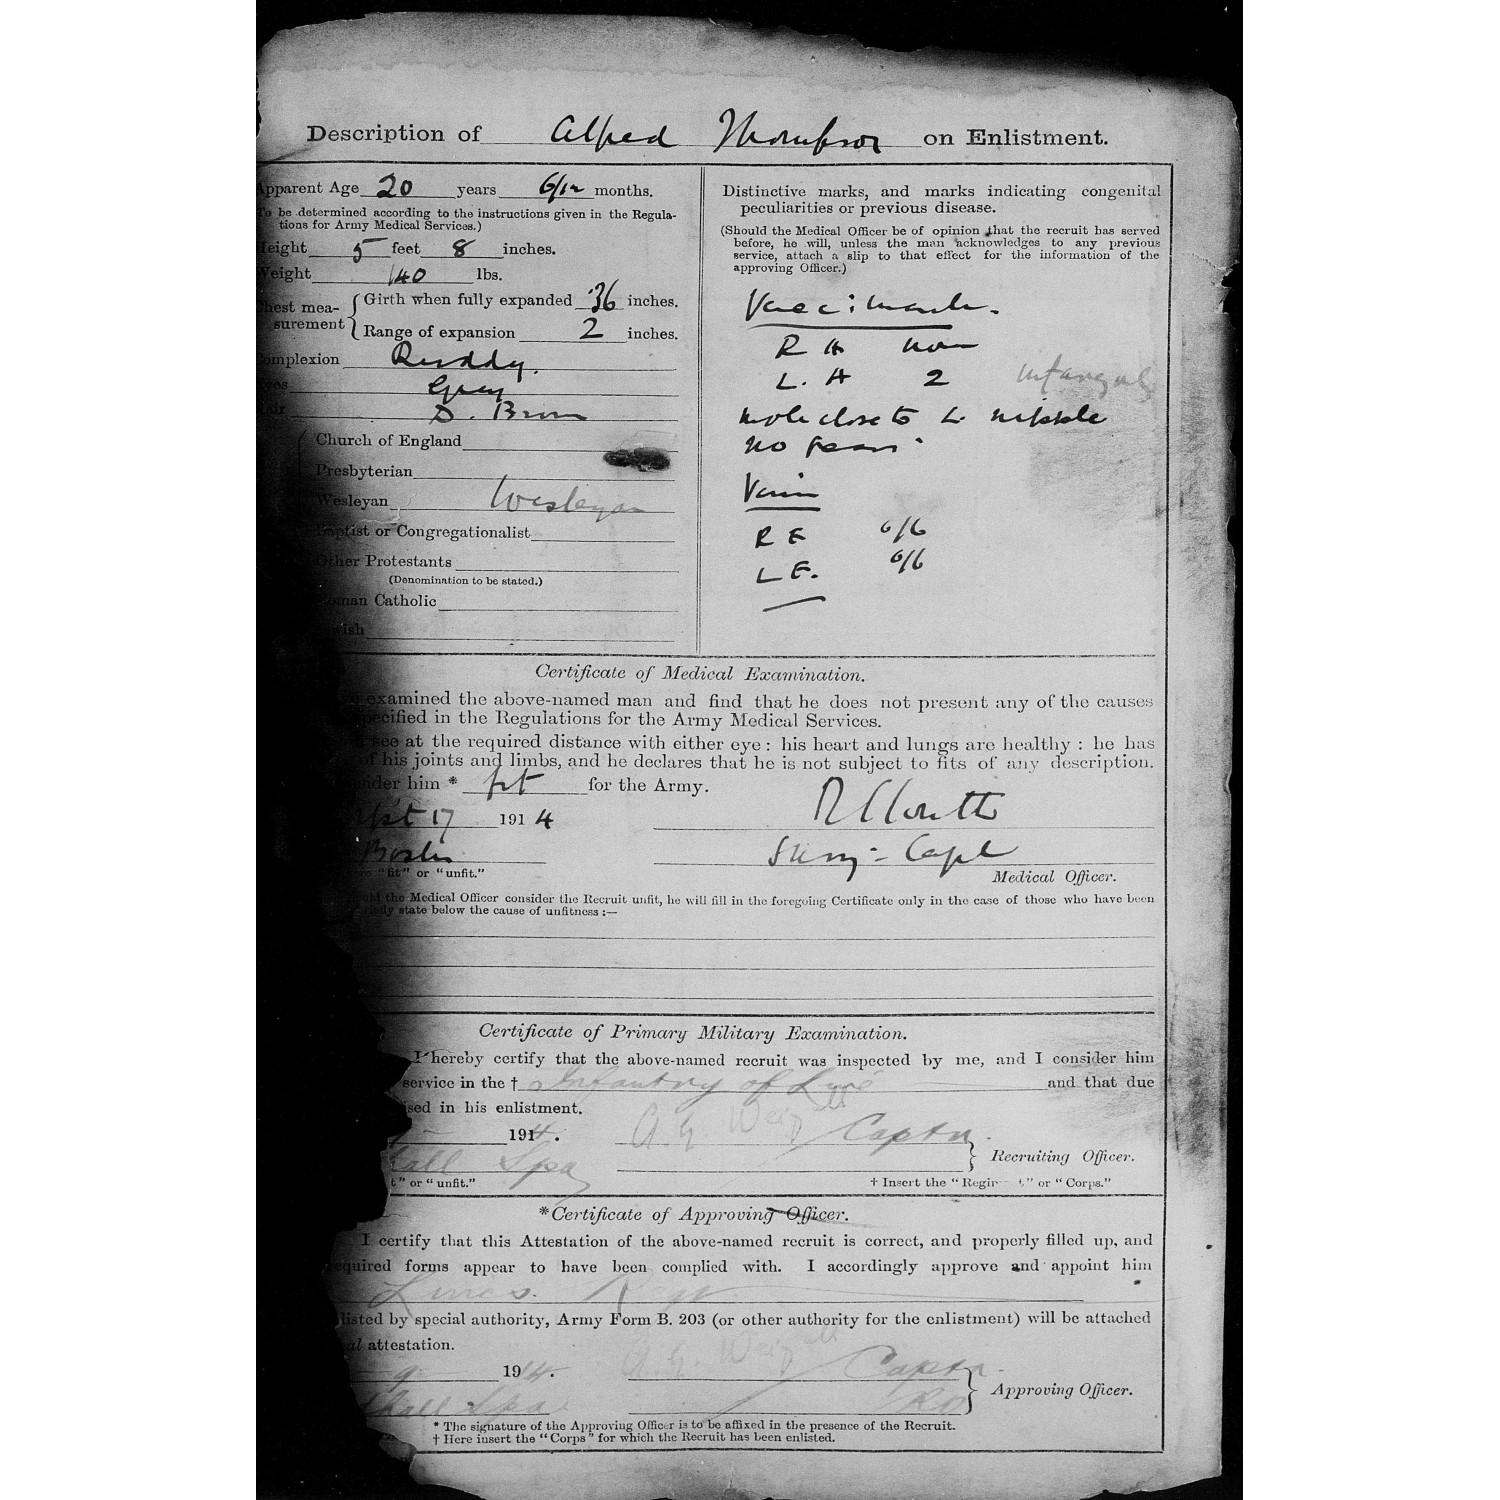 Description of Alfred Thompson on Enlistment.
Apparent Age 20 years 6/12 months.
To be determined according to the instructions given in the Regula-
tions for Army Medical Services.)
Height 5 feet 8 inches.
Weight 140 lbs.
Chest mea-
surement
Girth when fully expanded 36 inches.
Range of expansion 2 inches.
Complexion Ruddy.
Eyes Grey
Hair D. Brown
Church of England
Presbyterian
Wesleyan Wesleyan
Baptist or Congregationalist
Other Protestants
(Denomination to be stated.)
Roman Catholic
Jewish
Distinctive marks, and marks indicating congenital
peculiarities or previous disease.
(Should the Medical Officer be of opinion that the recruit has served
before, he will, unless the man acknowledges to any previous
service, attach a slip to that effect for the information of the
approving Officer.)
Vacc: marks.
R A
L. A 2
mole close to L. nipple
no
Vision
R E 6/6
L E. 6/6
Certificate of Medical Examination.
examined the above-named man and find that he does not present any of the causes
specified in the Regulations for the Army Medical Services.
see at the required distance with either eye: his heart and lungs are healthy: he has
of his joints and limbs, and he declares that he is not subject to fits of any description.
him * fit for the Army.
Sept 17 1914
Surg-Capt
Medical Officer.
"fit" or "unfit."
the Medical Officer consider the Recruit unfit, he will fill in the foregoing Certificate only in the case of those who have been
state below the cause of unfitness:—
Certificate of Primary Military Examination.
I hereby certify that the above-named recruit was inspected by me, and I consider him
service in the † Infantry of Line and that due
in his enlistment.
1914.
A. G. Weigall Captn.
Spa
Recruiting Officer.
" or "unfit."
† Insert the "Regiment" or "Corps."
*Certificate of Approving Officer.
I certify that this Attestation of the above-named recruit is correct, and properly filled up, and
required forms appear to have been complied with. I accordingly approve and appoint him
Lincs. Regt
by special authority, Army Form B. 203 (or other authority for the enlistment) will be attached
attestation.
9 1914.
A. G. Weigall Captn.
Spa RO
Approving Officer.
* The signature of the Approving Officer is to be affixed in the presence of the Recruit.
† Here insert the "Corps" for which the Recruit has been enlisted.